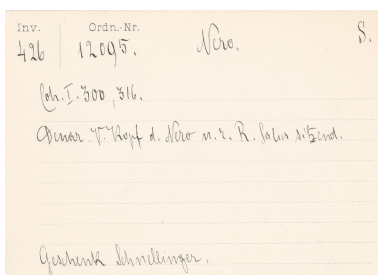 Inv. Ordn.-Nr.
426 12095. Nero. S.
Coh. I. 300, 316.
Denar V. Kopf d. Nero n. r. R. Salus sitzend.
Geschenk Schnellinger.